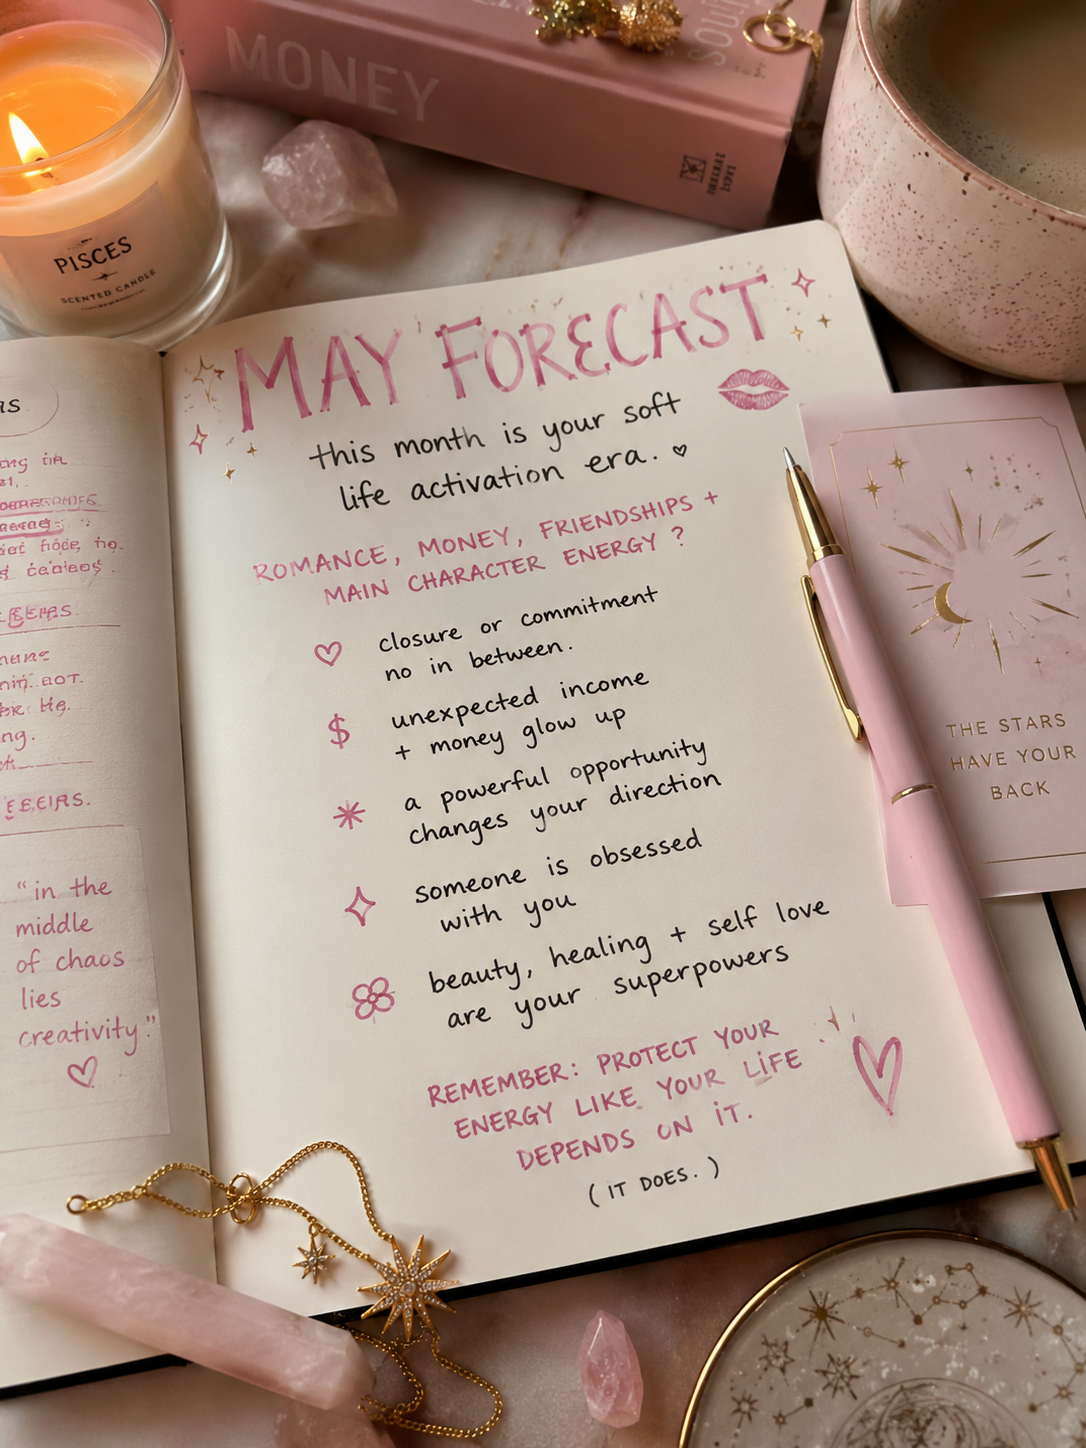 MONEY
PISCES
SCENTED CANDLE
MAY FORECAST
this month is your soft
life activation era.
ROMANCE, MONEY, FRIENDSHIPS +
MAIN CHARACTER ENERGY ?
closure or commitment
no in between.
$ unexpected income
+ money glow up
a powerful opportunity
changes your direction
someone is obsessed
with you
beauty, healing + self love
are your superpowers
REMEMBER: PROTECT YOUR
ENERGY LIKE YOUR LIFE
DEPENDS ON IT.
(IT DOES.)
"in the
middle
of chaos
lies
creativity."
THE STARS
HAVE YOUR
BACK